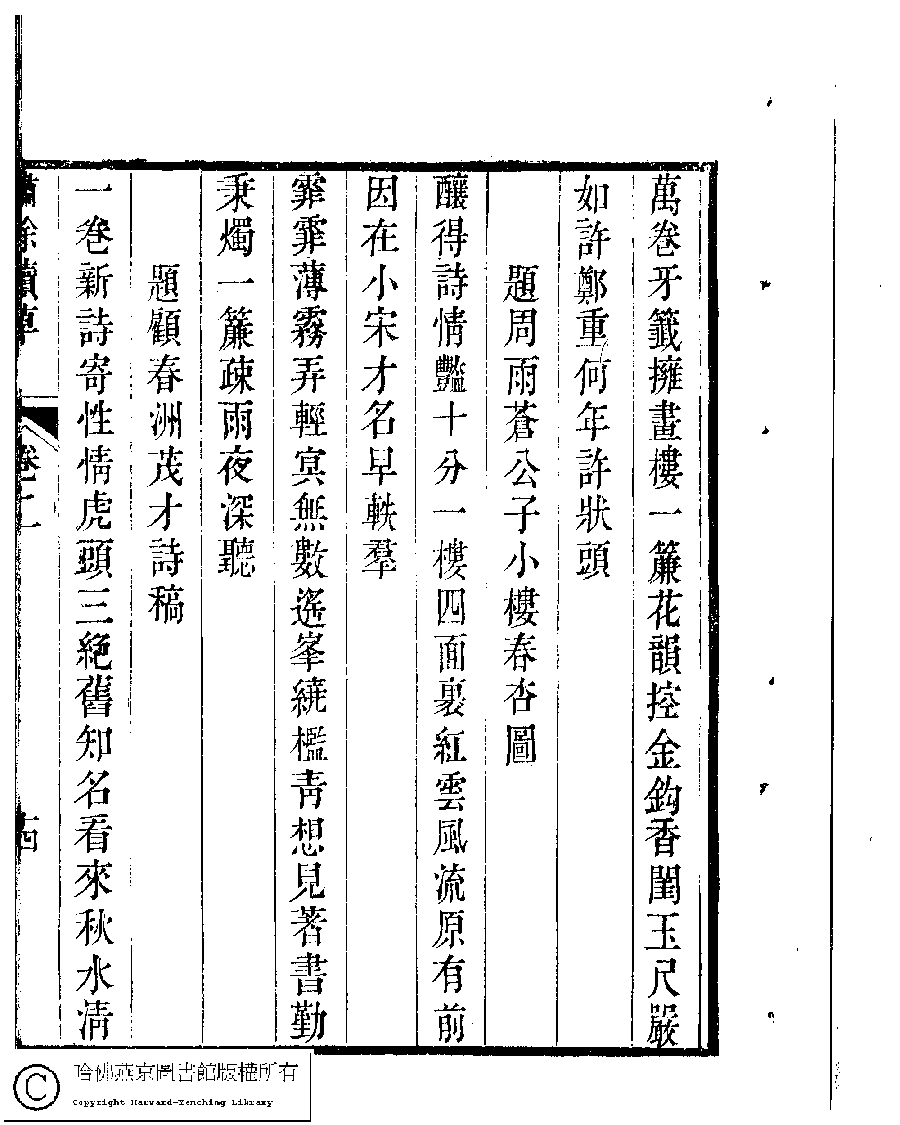 萬卷牙籤擁畫樓一簾花韻控金鈎香閨玉尺嚴
如許鄭重何年許狀頭
題周雨蒼公子小樓春杏圖
釀得詩情豔十分一樓四面裹紅雲風流原有前
因在小宋才名早軼羣
霏霏薄霧弄輕寘無數遙峯繞檻靑想見著書勤
秉燭一簾疎雨夜深聽
題顧春洲茂才詩稿
一卷新詩寄性情虎頭三絶舊知名看來秋水淸
餘續草
卷二
十四
哈佛燕京圖書館版權所有
Copyright Harvard-Yenching Library